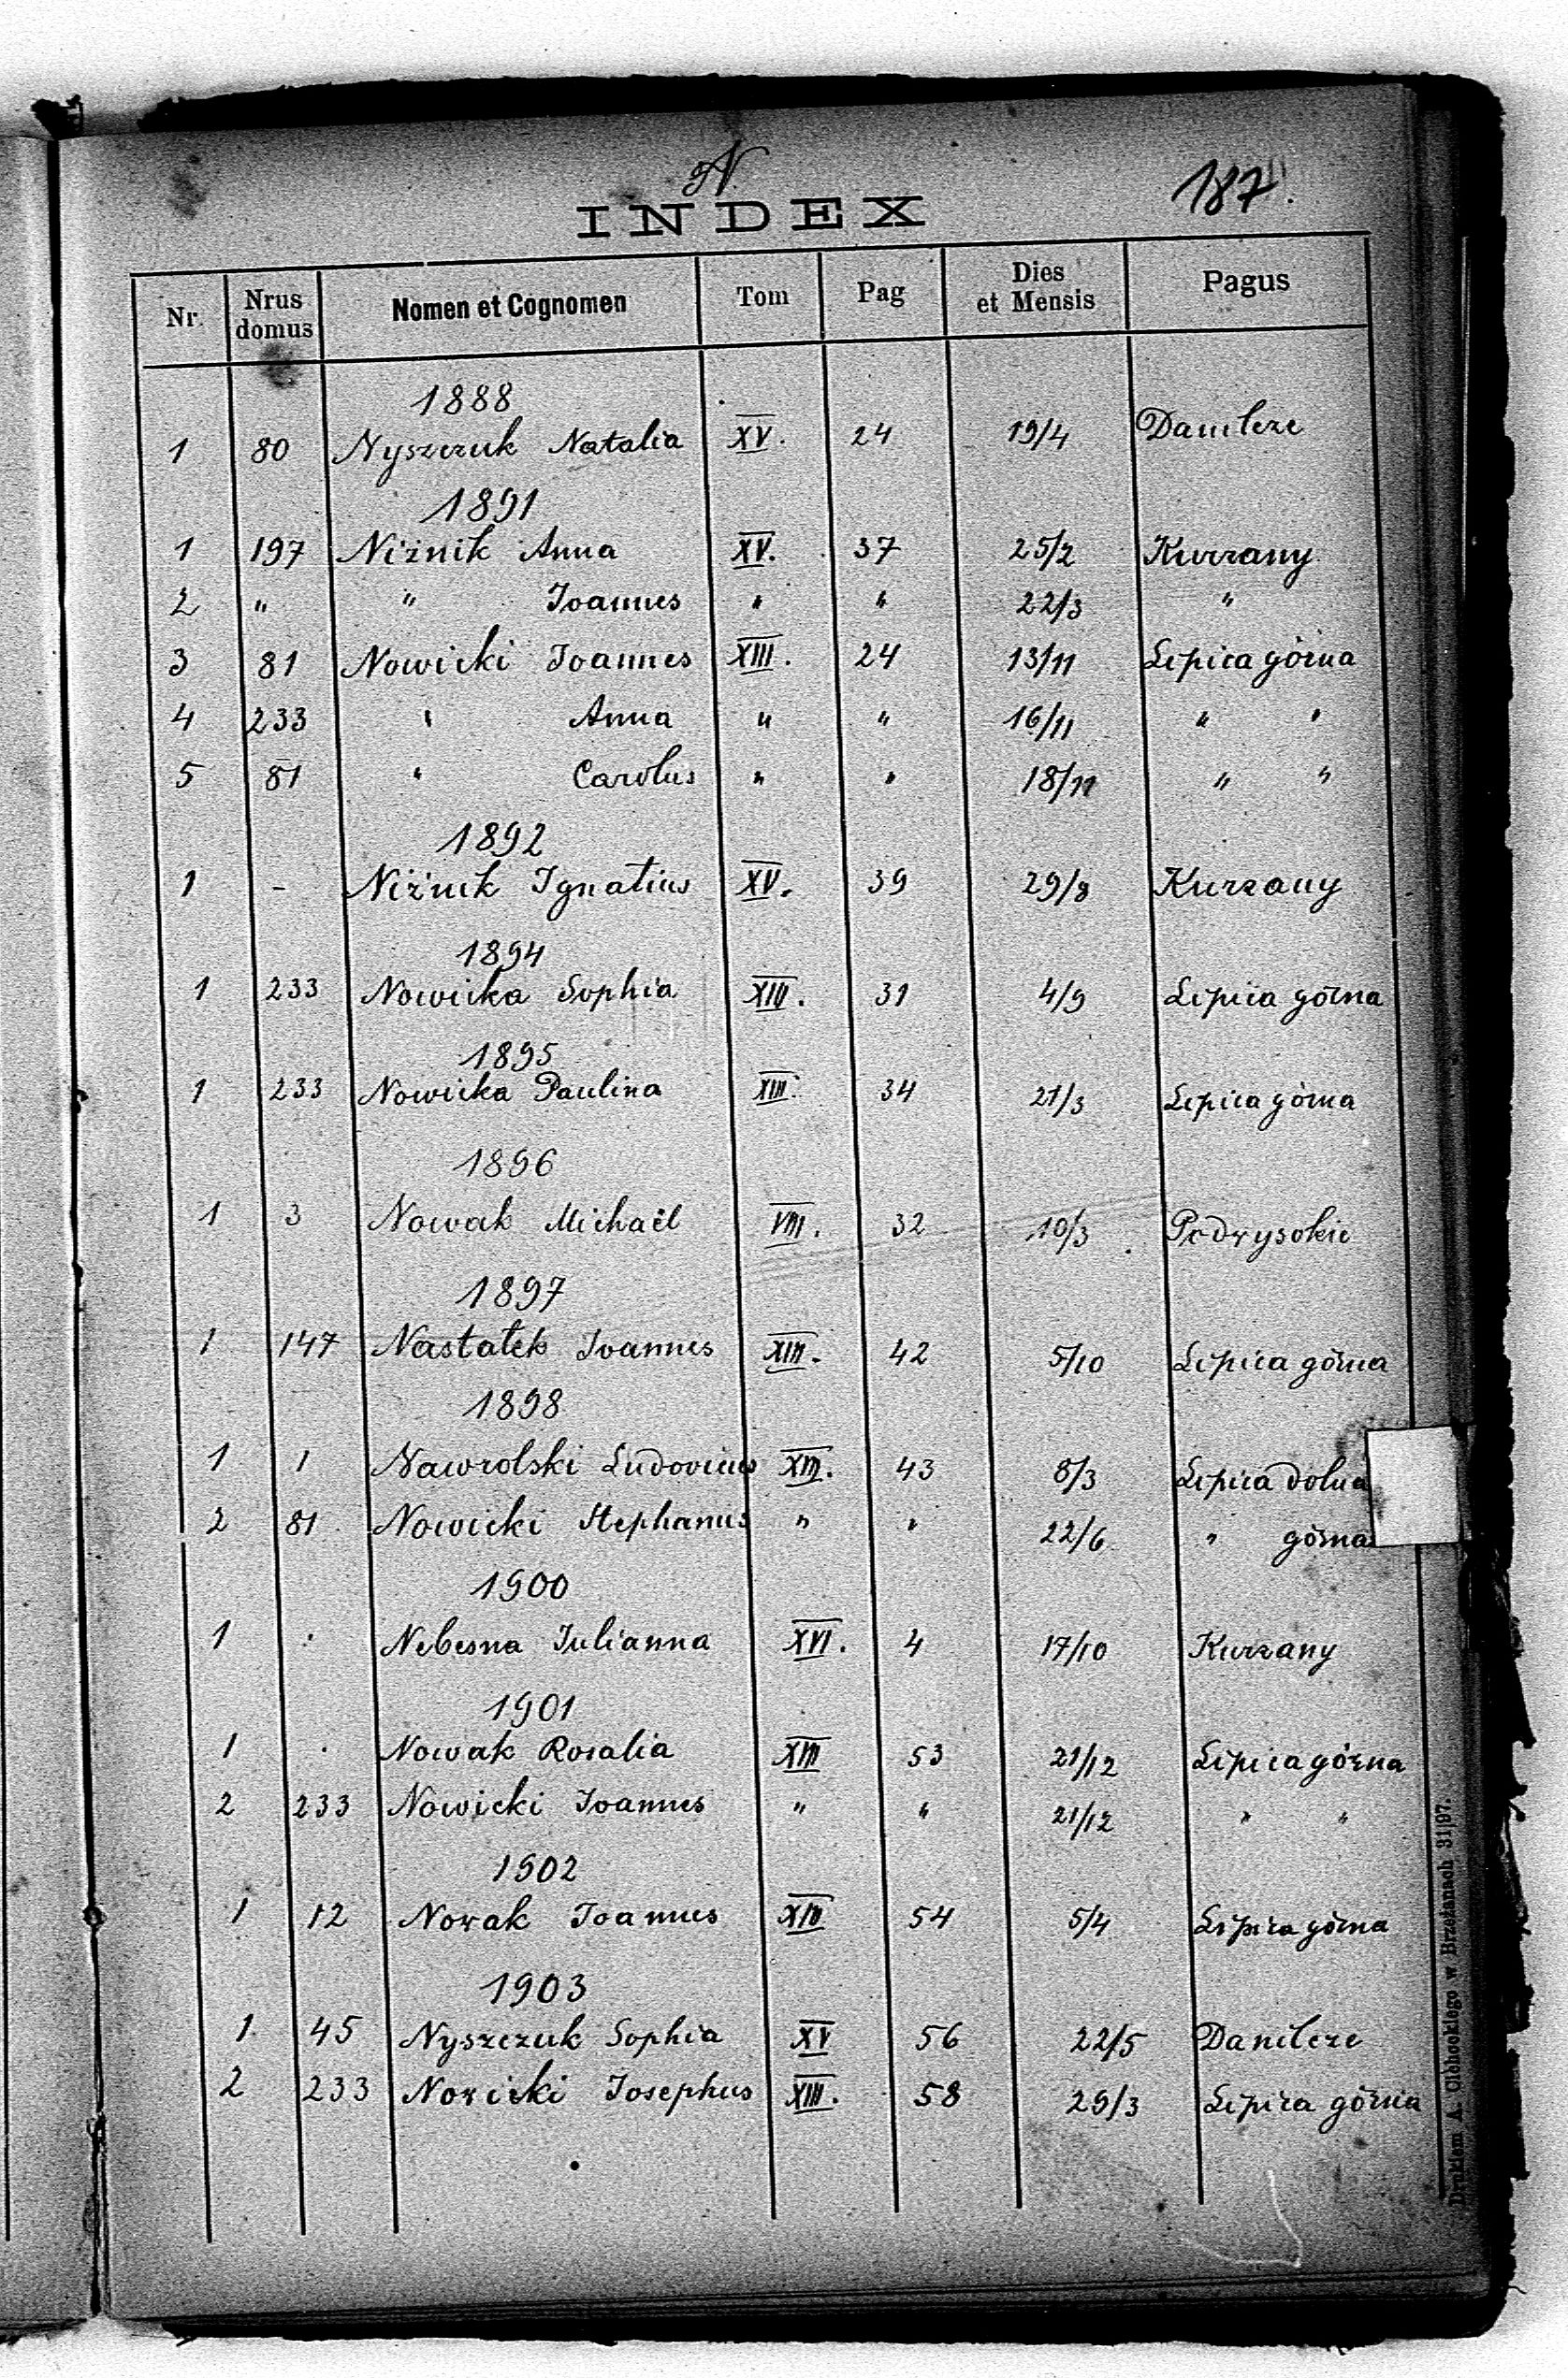 N.
187.
INDEX
Nr. Nrus domus Nomen et Cognomen Tom Pag Dies et Mensis Pagus
1888
1 80 Nyszczuk Natalia XV. 24 19/4 Danilcze
1891
1 197 Niżnik Anna XV. 37 25/2 Kurzany
2 " " Joannes " " 22/3 "
3 81 Nowicki Joannes XIII. 24 13/11 Lipica górna
4 233 " Anna " " 16/11 " "
5 81 " Carolus " " 18/11 " "
1892
1 - Niżnik Ignatius XV. 39 29/8 Kurzany
1894
1 233 Nowicka Sophia XIII. 31 4/9 Lipica górna
1895
1 233 Nowicka Paulina XIII. 34 21/3 Lipica górna
1896
1 3 Nowak Michaël VIII. 32 10/3 Podwysokie
1897
1 147 Nastałek Joannes XIII. 42 5/10 Lipica górna
1898
1 1 Nawrolski Ludovicus XIII. 43 8/3 Lipica dolna
2 81 Nowicki Stephanus " " 22/6 " górna
1900
1 . Nebesna Julianna XVI. 4 17/10 Kurzany
1901
1 . Nowak Rosalia XIII 53 21/12 Lipica górna
2 233 Nowicki Joannes " " 21/12 " "
1902
1 12 Nowak Joannes XIII 54 5/4 Lipica górna
1903
1. 45 Nyszczuk Sophia XV 56 22/5 Danilcze
2 233 Nowicki Josephus XIII. 58 29/3 Lipica górna
w Brzeżanach 31/97.